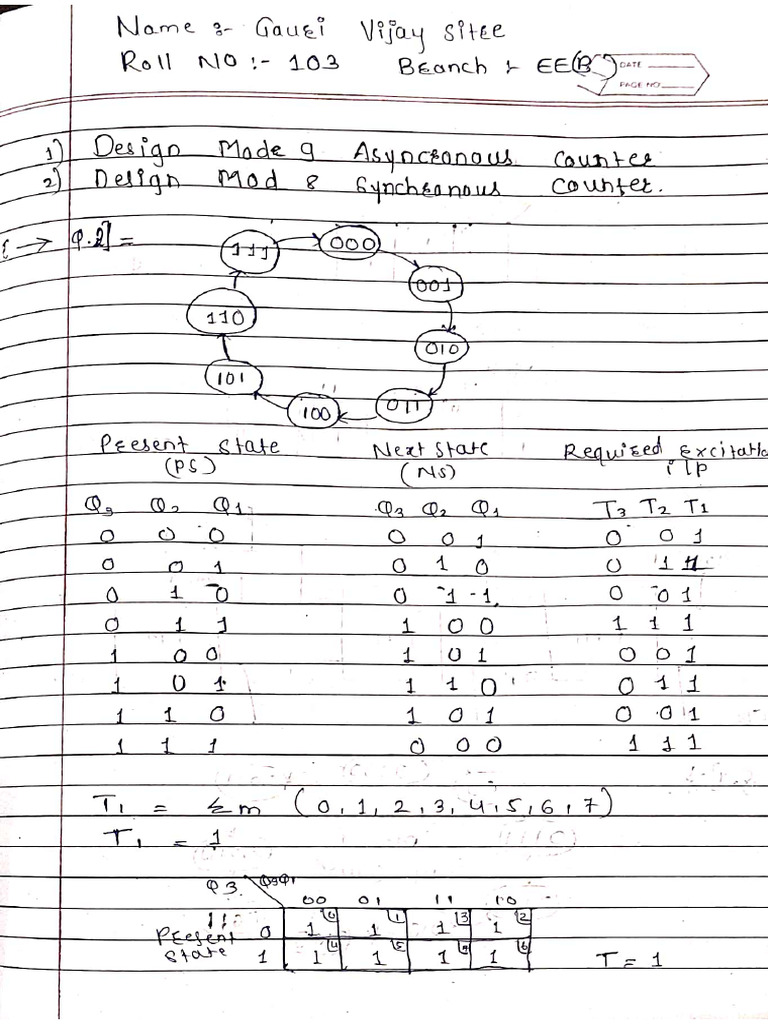 Name :- Gauri Vijay Sitre
Roll NO :- 103 Branch :- EE(B)
DATE
PAGE NO
1) Design Mode 9 Asyncronous counter
2) Design Mod 8 Synchronous counter.
→ Q.2] =
111 000
001
110
010
101
100 011
Present State Next State Required Excitatio
(PS) (NS) i/p
Q3 Q2 Q1 Q3 Q2 Q1 T3 T2 T1
0 0 0 0 0 1 0 0 1
0 0 1 0 1 0 0 1 1
0 1 0 0 1 1 0 0 1
0 1 1 1 0 0 1 1 1
1 0 0 1 0 1 0 0 1
1 0 1 1 1 0 0 1 1
1 1 0 1 0 1 0 0 1
1 1 1 0 0 0 1 1 1
T1 = Σm (0, 1, 2, 3, 4, 5, 6, 7)
T1 = 1
Q3
00 01 11 10
Present 0 1 0 1 1 1 3 1 2
State 1 1 4 1 5 1 7 1 6 T = 1